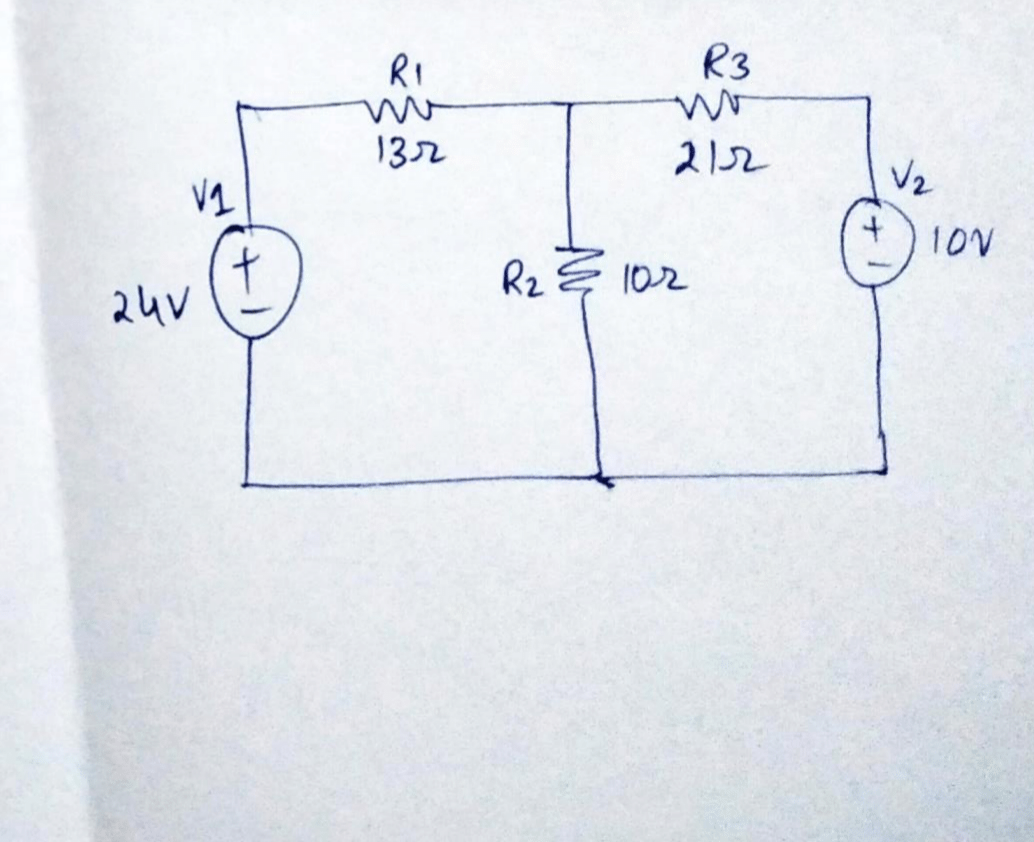 R1
13Ω
R3
21Ω
V1
24V
+
−
R2
10Ω
V2
+
−
10V